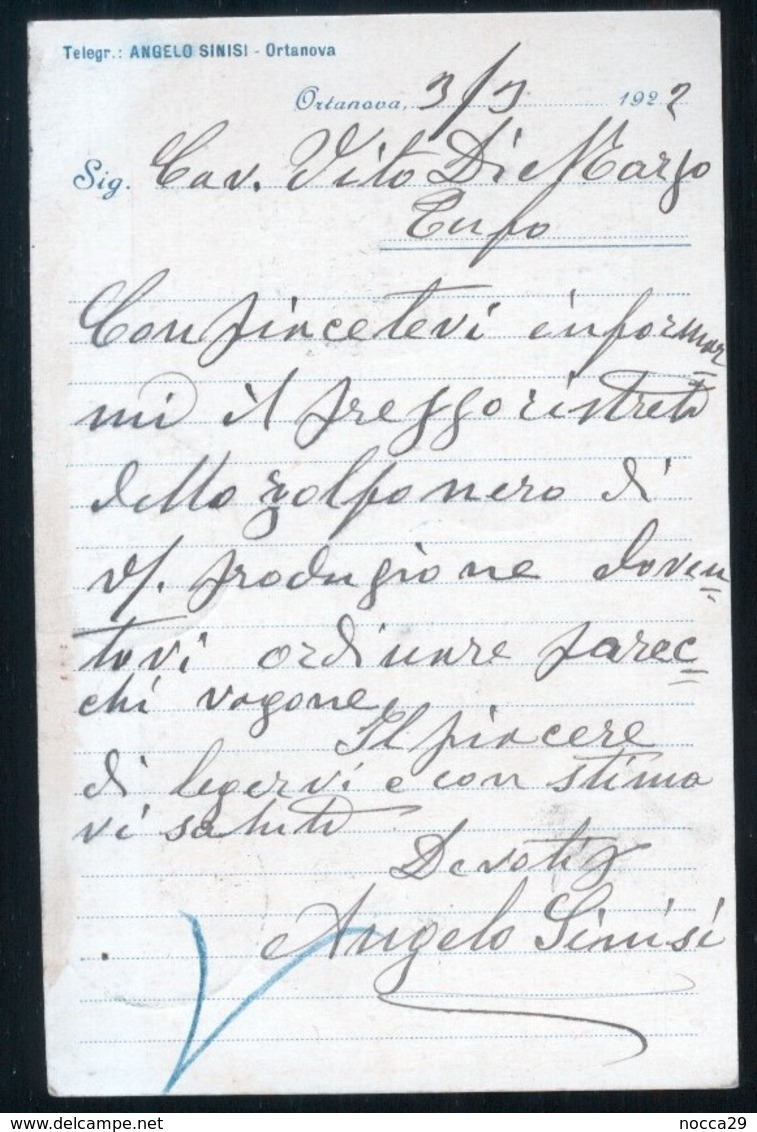 Telegr.: ANGELO SINISI - Ortanova
Ortanova, 3/3 1922
Sig. Cav. Vito Di Marzo
Tufo
Compiacetevi informar=
mi il prezzo ristretto
dello zolfo nero di
v/. produzione doven=
tovi ordinare parec=
chi vagone.
Il piacere
di legervi e con stima
vi saluto
Devotis
Angelo Sinisi
nocca29